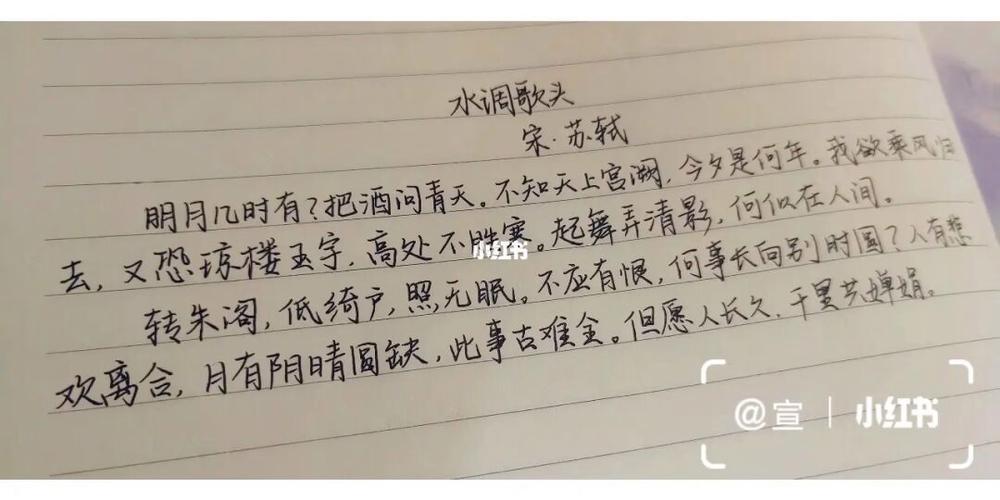 水调歌头
宋·苏轼
明月几时有?把酒问青天。不知天上宫阙,今夕是何年。我欲乘风归
去,又恐琼楼玉宇,高处不胜寒。起舞弄清影,何似在人间。
转朱阁,低绮户,照无眠。不应有恨,何事长向别时圆?人有悲
欢离合,月有阴晴圆缺,此事古难全。但愿人长久,千里共婵娟。
小红书
@宣 | 小红书